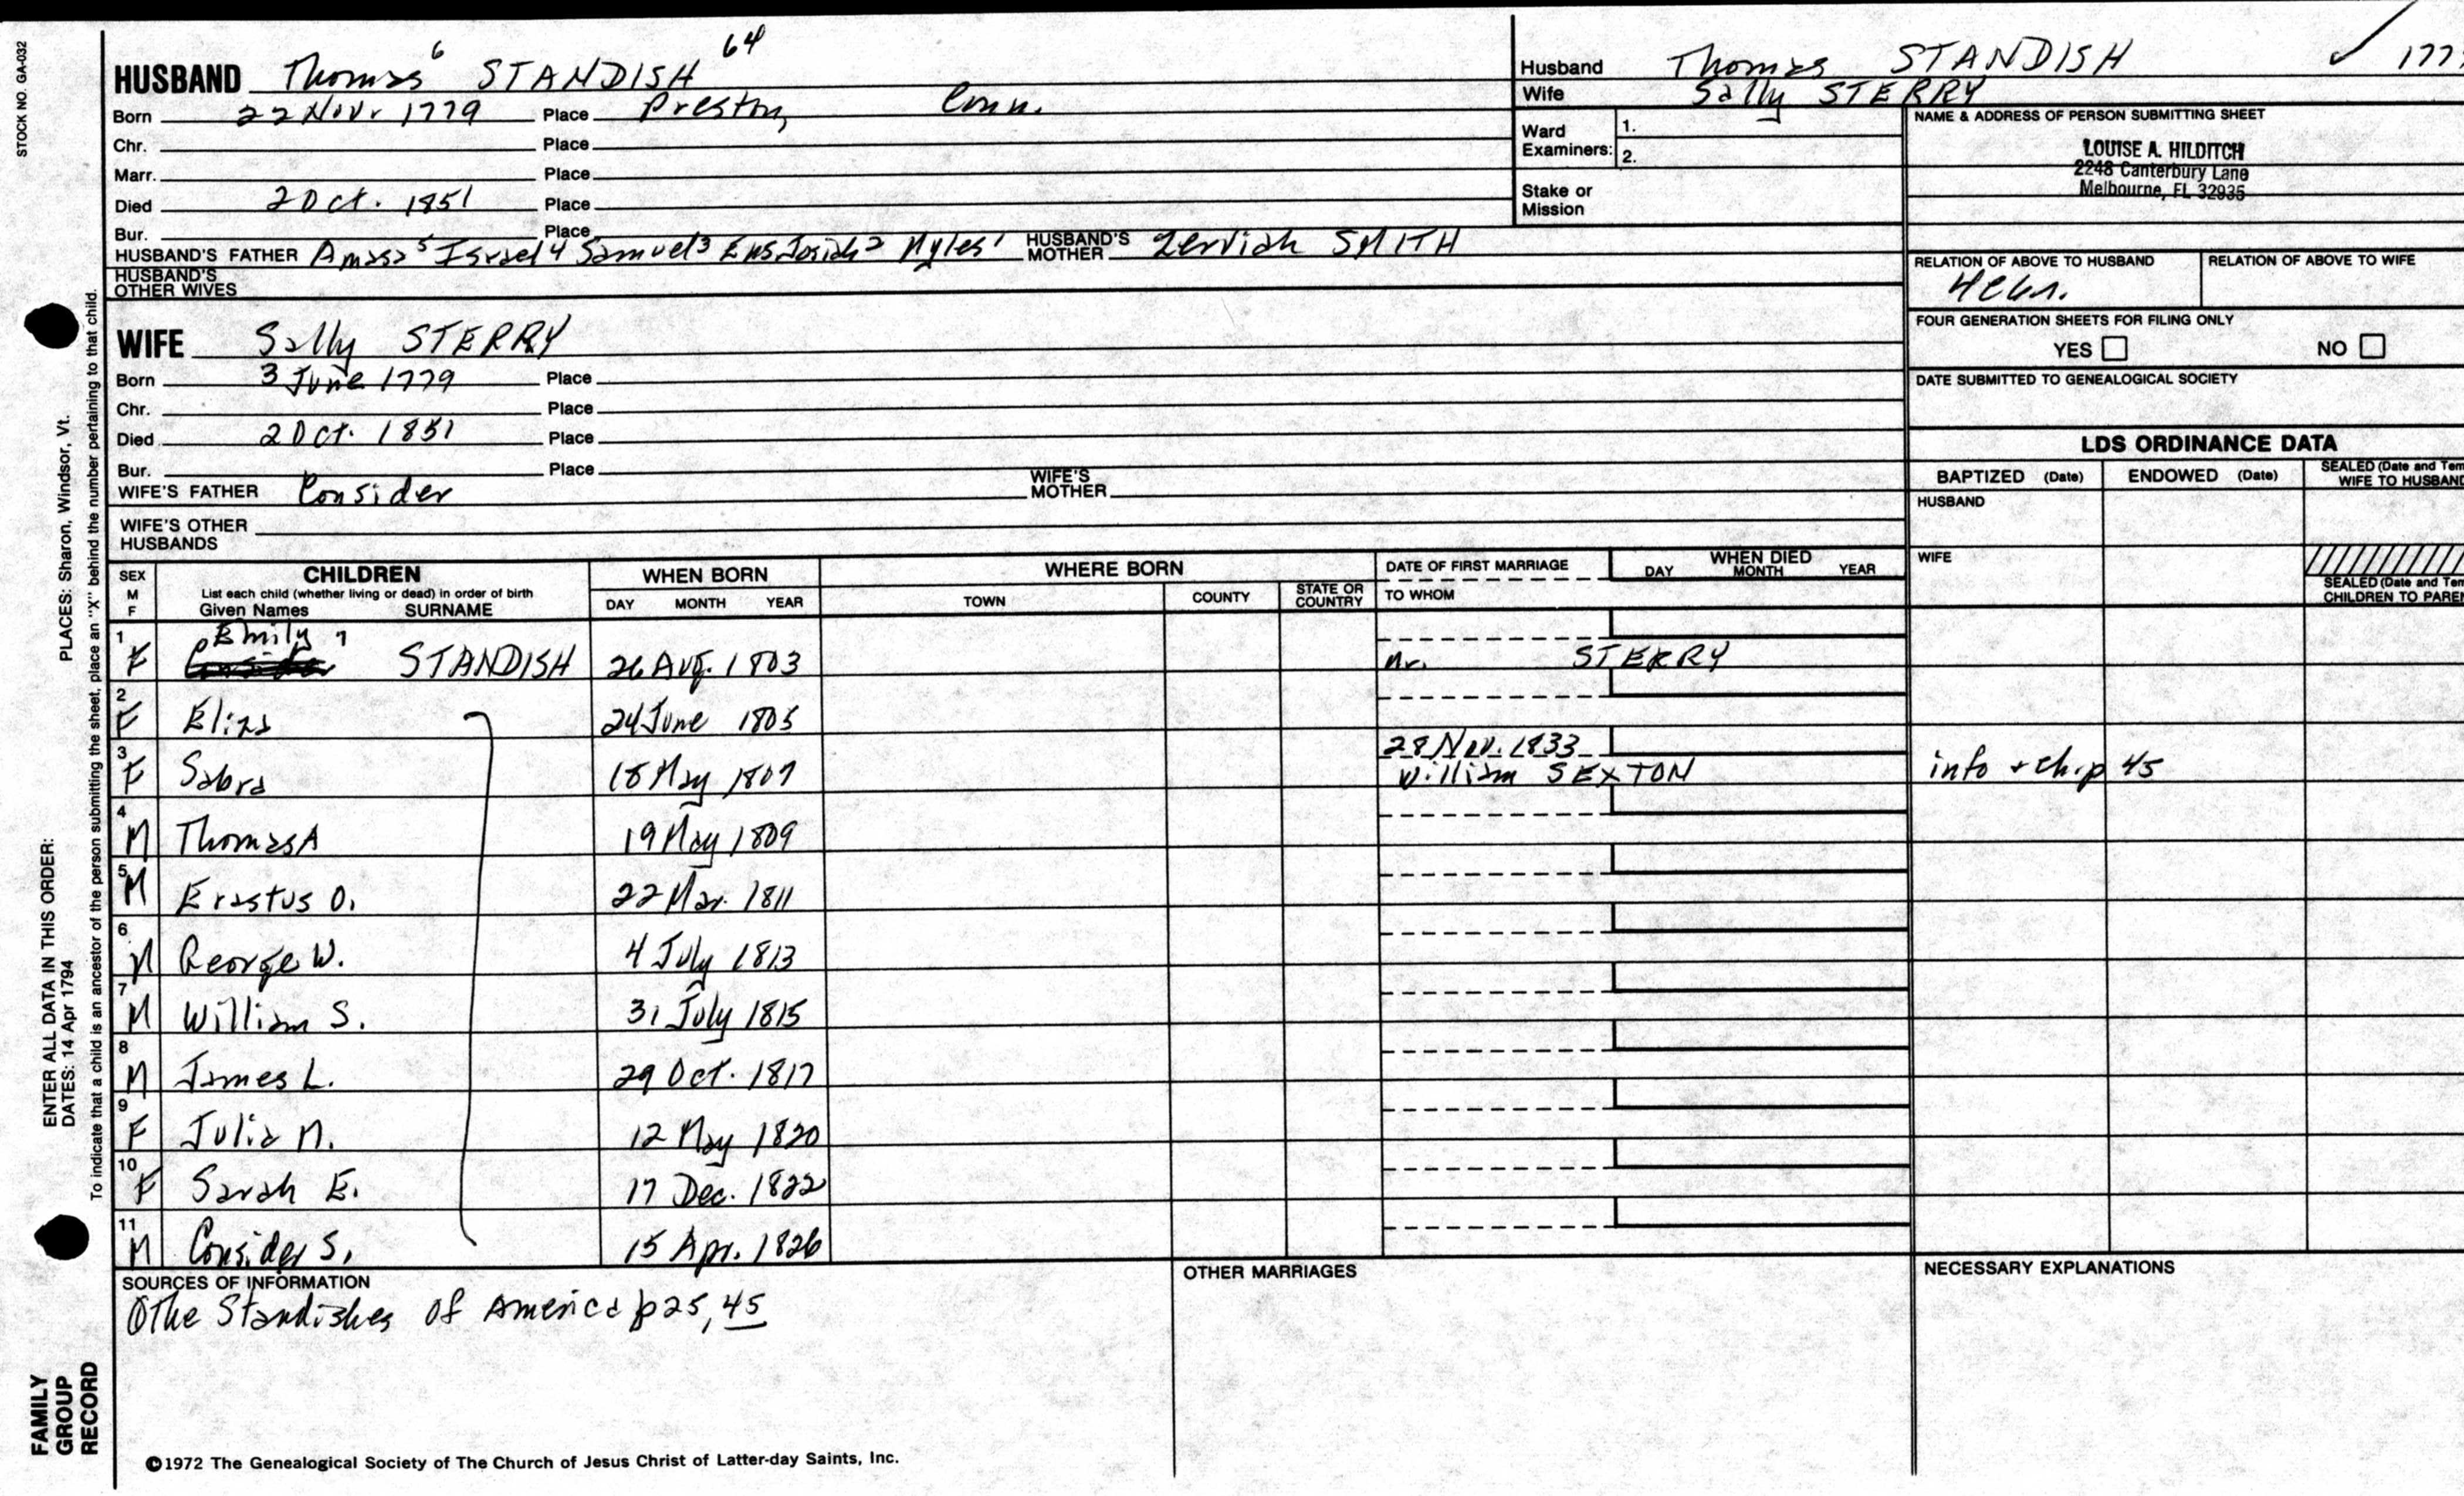 STOCK NO. GA-032
HUSBAND Thomas 6 STANDISH 64
Born 22 Nov. 1779 Place Preston, Conn.
Chr. Place
Marr. Place
Died 2 Oct. 1851 Place
Bur. Place
HUSBAND'S FATHER Amasa 5 Israel 4 Samuel 3 Ens. Josiah 2 Myles 1 HUSBAND'S MOTHER Zerviah SMITH
HUSBAND'S OTHER WIVES
Husband Thomas STANDISH ✓ 177
Wife Sally STERRY
Ward Examiners: 1.
2.
Stake or Mission
NAME & ADDRESS OF PERSON SUBMITTING SHEET
LOUISE A. HILDITCH
2248 Canterbury Lane
Melbourne, FL 32935
RELATION OF ABOVE TO HUSBAND RELATION OF ABOVE TO WIFE
FOUR GENERATION SHEETS FOR FILING ONLY
YES NO
DATE SUBMITTED TO GENEALOGICAL SOCIETY
WIFE Sally STERRY
Born 3 June 1779 Place
Chr. Place
Died 2 Oct. 1851 Place
Bur. Place
WIFE'S FATHER Consider WIFE'S MOTHER
WIFE'S OTHER HUSBANDS
LDS ORDINANCE DATA
BAPTIZED (Date) ENDOWED (Date) SEALED (Date and Tem
WIFE TO HUSBAND
HUSBAND
WIFE
SEALED (Date and Tem
CHILDREN TO PAREN
SEX M F CHILDREN
List each child (whether living or dead) in order of birth
Given Names SURNAME
WHEN BORN
DAY MONTH YEAR
WHERE BORN
TOWN COUNTY STATE OR COUNTRY
DATE OF FIRST MARRIAGE
TO WHOM
WHEN DIED
DAY MONTH YEAR
1 F Emily 7 STANDISH 26 Aug. 1803 Mr. STERRY
2 F Eliza 24 June 1805
3 F Sabra 18 May 1807 28 Nov. 1833 William SEXTON info + ch. p 45
4 M Thomas A 19 May 1809
5 M Erastus O. 22 Mar. 1811
6 M George W. 4 July 1813
7 M William S. 31 July 1815
8 M James L. 29 Oct. 1817
9 F Julia M. 12 May 1820
10 F Sarah E. 17 Dec. 1822
11 M Consider S. 15 Apr. 1826
SOURCES OF INFORMATION
The Standishes of America p 25, 45
OTHER MARRIAGES
NECESSARY EXPLANATIONS
©1972 The Genealogical Society of The Church of Jesus Christ of Latter-day Saints, Inc.
ENTER ALL DATA IN THIS ORDER:
DATES: 14 Apr 1794 PLACES: Sharon, Windsor, Vt.
To indicate that a child is an ancestor of the person submitting the sheet, place an "X" behind the number pertaining to that child.
FAMILY
GROUP
RECORD